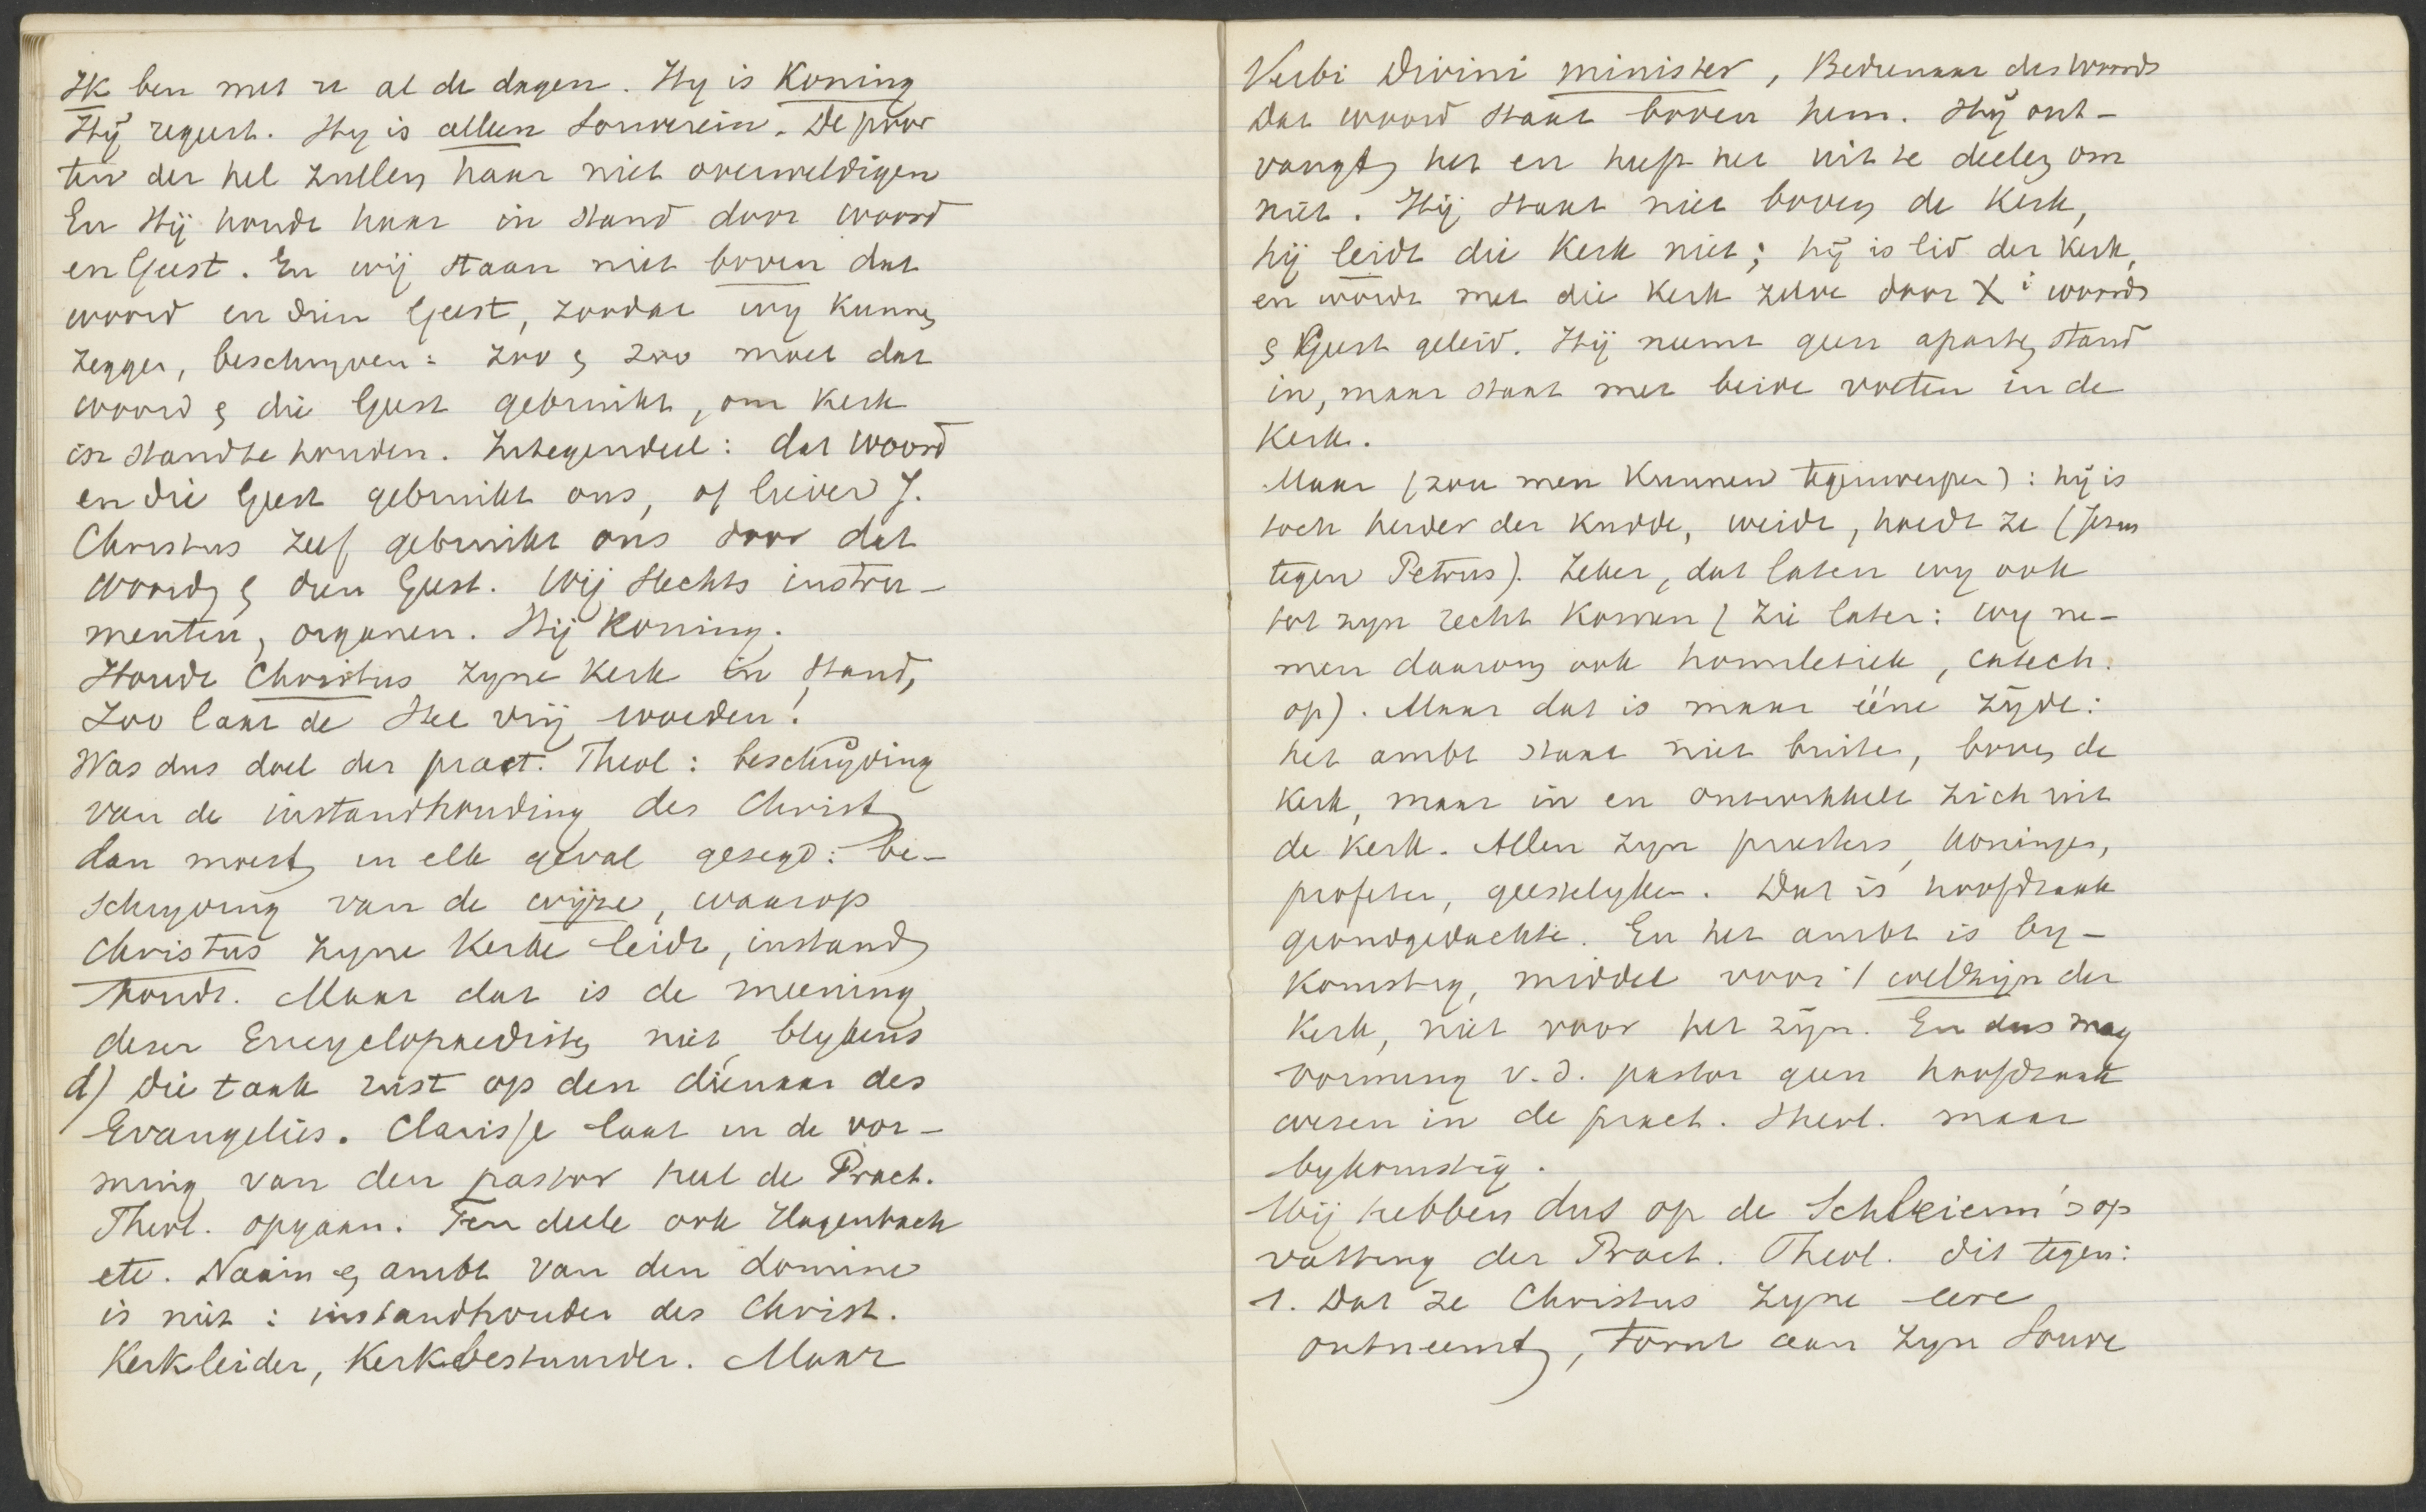 Ik ben met u al de dagen. Hy is Koning
Hij regeert. Hy is alleen Souverein. De poor
ten der hel zullen haar niet overweldigen
En Hij houdt haar in stand door woord
en Geest. En wij staan niet boven dat
woord en dien Geest, zoodat wy kunnen
zeggen, beschryven: zoo & zoo moet dat
woord & die Geest gebruikt, om Kerk
in stand te houden. Integendeel: dat woord
en die Geest gebruikt ons, of liever J.
Christus zelf gebruikt ons door dat
woord & dien Geest. Wij slechts instru-
menten, organen. Hij Koning.
Houdt Christus zyne Kerk in stand,
Zoo laat de Stee vrij worden!
Was dus doel der pract. Theol: beschrijving
van de instandhouding des Christ
dan moest in elk geval gezegd: be-
schryving van de wijze, waarop
Christus zyne Kerke leidt, instand
houdt. Maar dat is de meening
dezer Encyclopaedisten niet, blykens
d) Die taak rust op den dienaar des
Evangelies. Clarisse laat in de vor-
ming van den pastor heel de Pract.
Theol. opgaan. Ten deele ook Hagenbach
etc. Naam & ambt van den domine
is niet: instandhouder des Christ.
Kerkleider, Kerkbestuurder. Maar
Verbi Divini minister, Bedienaar des Woords
Dat woord staat boven hem. Hij ont-
vangt het en heeft het uit te deelen om
niet. Hij staat niet boven de Kerk,
hij leidt die Kerk niet; hij is lid der Kerk,
en wordt met die Kerk zelve door Xi woord
& Geest geleid. Hij neemt geen aparten stand
in, maar staat met beide voeten in de
Kerk.
Maar (zou men kunnen tegenwerpen): hij is
toch herder der kudde, weidt, hoedt ze (Jesus
tegen Petrus). Zeker, dat laten wy ook
tot zyn recht komen (zie later: wy ne-
men daarom ook homiletiek, catech.
op). Maar dat is maar ééne zijde:
het ambt staat niet buiten, boven de
Kerk, maar in en ontwikkelt zich uit
de Kerk. Allen zyn priesters, koningen,
profeten, geestelyken. Dat is hoofdzaak
grondgedachte. En het ambt is by-
komstig, middel voor 't welzijn der
Kerk, niet voor het zijn. En dus mag
vorming v.d. pastor geen hoofdzaak
wezen in de pract. theol. maar
bykomstig.
Wij hebben dus op de Schleierm's op
vatting der Pract. Theol. dit tegen:
1. Dat ze Christus zyne eere
ontneemt, tornt aan zyn Souve